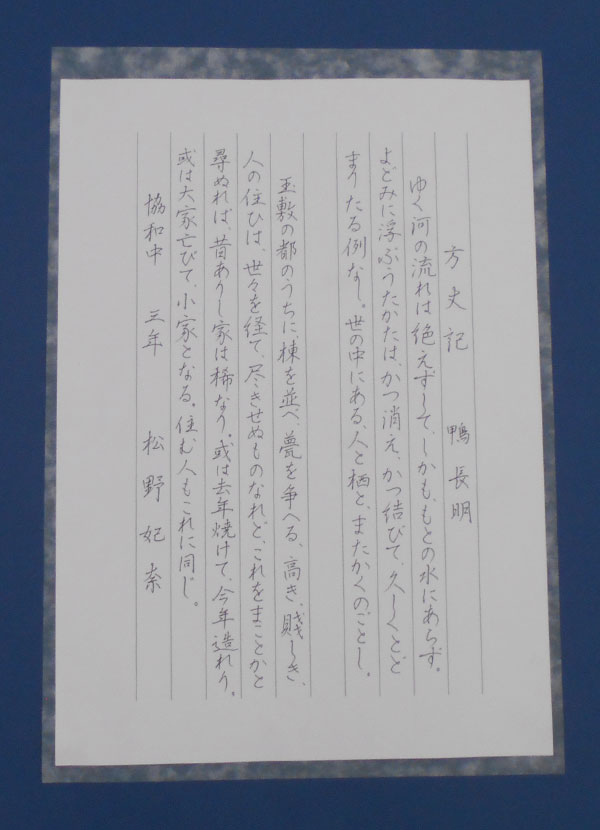 方丈記 鴨長明
ゆく河の流れは絶えずして、しかも、もとの水にあらず。
よどみに浮ぶうたかたは、かつ消え、かつ結びて、久しくとど
まりたる例なし。世の中にある、人と栖と、またかくのごとし。
玉敷の都のうちに、棟を並べ、甍を争へる、高き、賤しき、
人の住ひは、世々を経て、尽きせぬものなれど、これをまことかと
尋ぬれば、昔ありし家は稀なり。或は去年焼けて、今年造れり。
或は大家亡びて、小家となる。住む人もこれに同じ。
協和中 三年 松野妃奈